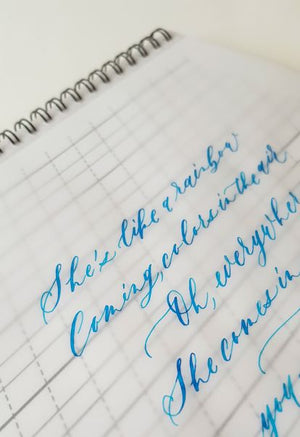 She's like a rainbow
Coming, colors in the air
Oh, everywhere
She comes in
you